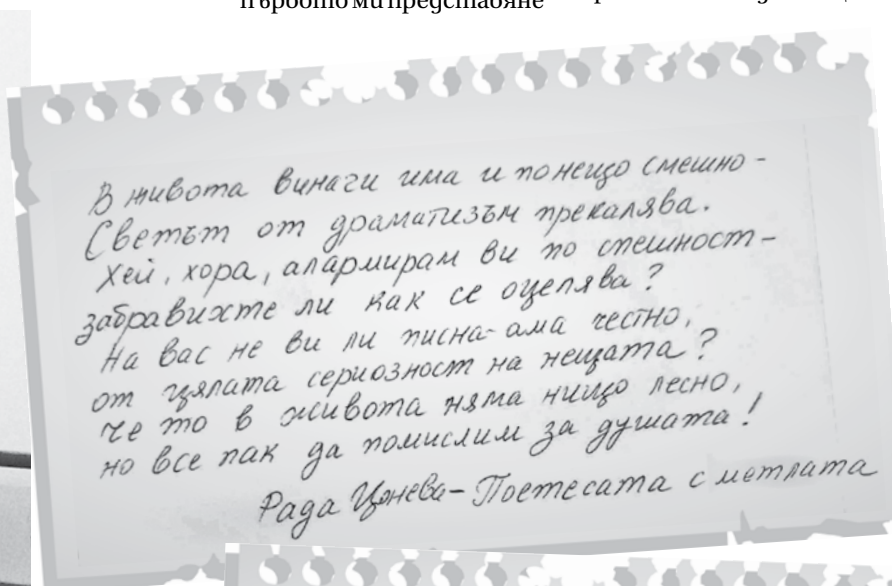 първото ми представяне
В живота винаги има и понещо смешно -
Светът от драматизъм прекалява.
Хей, хора, алармирам ви по спешност -
забравихте ли как се оцелява?
На вас не ви ли писна - ама честно,
от цялата сериозност на нещата?
че то в живота няма нищо лесно,
но все пак да помислим за душата!
Рада Цонева - Поетесата с метлата